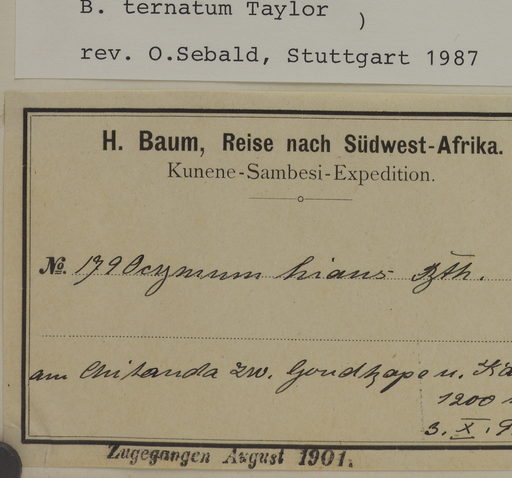 B. ternatum Taylor )
rev. O.Sebald, Stuttgart 1987
H. Baum, Reise nach Südwest-Afrika.
Kunene-Sambesi-Expedition.
No. 179 Ocymum hians Bth.
am Chitanda zw. Goudkopje u.
1200
3. X. 9
Zugegangen August 1901.